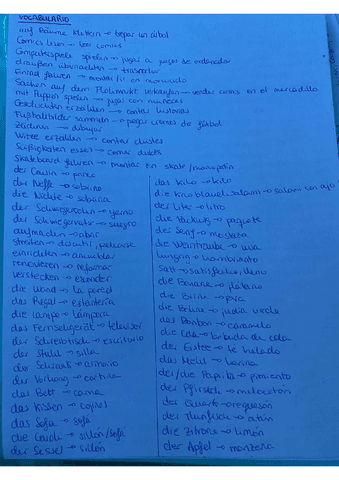 VOCABULARIO
auf Bäume klettern → trepar un árbol
Comics lesen → leer comics
Computerspiele spielen → jugar a juegos de ordenador
draußen übernachten → trasnochar
Einrad fahren → montar/ir en monociclo
Sachen auf dem Flohmarkt verkaufen → vender cosas en el mercadillo
mit Puppen spielen → jugar con muñecas
Geschichten erzählen → contar historias
Fußballbilder sammeln → pegar cromos de fútbol
zeichnen → dibujar
Witze erzählen → contar chistes
Süßigkeiten essen → comer dulces
Skateboard fahren → montar en skate/monopatín
der Cousin → primo
der Neffe → sobrino
die Nichte → sobrina
der Schwiegersohn → yerno
der Schwiegervater → suegro
aufmachen → abrir
streiten → discutir, pelearse
einrichten → amueblar
renovieren → reformar
verstecken → esconder
die Wand → la pared
das Regal → estantería
die Lampe → lámpara
das Fernsehgerät → televisor
der Schreibtisch → escritorio
der Stuhl → silla
der Schrank → armario
der Vorhang → cortina
das Bett → cama
das Kissen → cojín
das Sofa → sofá
die Couch → sillón/sofá
der Sessel → sillón
das Kilo → kilo
die Knoblauch-salami → salami con ajo
der Liter → litro
die Packung → paquete
der Senf → mostaza
die Weintraube → uva
hungrig → hambriento
satt → satisfecho, lleno
die Banane → plátano
die Birne → pera
die Bohne → judía verde
das Bonbon → caramelo
die Cola → bebida de cola
der Eistee → té helado
das Mehl → harina
der/die Paprika → pimiento
der Pfirsich → melocotón
der Quark → requesón
der Thunfisch → atún
die Zitrone → limón
der Apfel → manzana